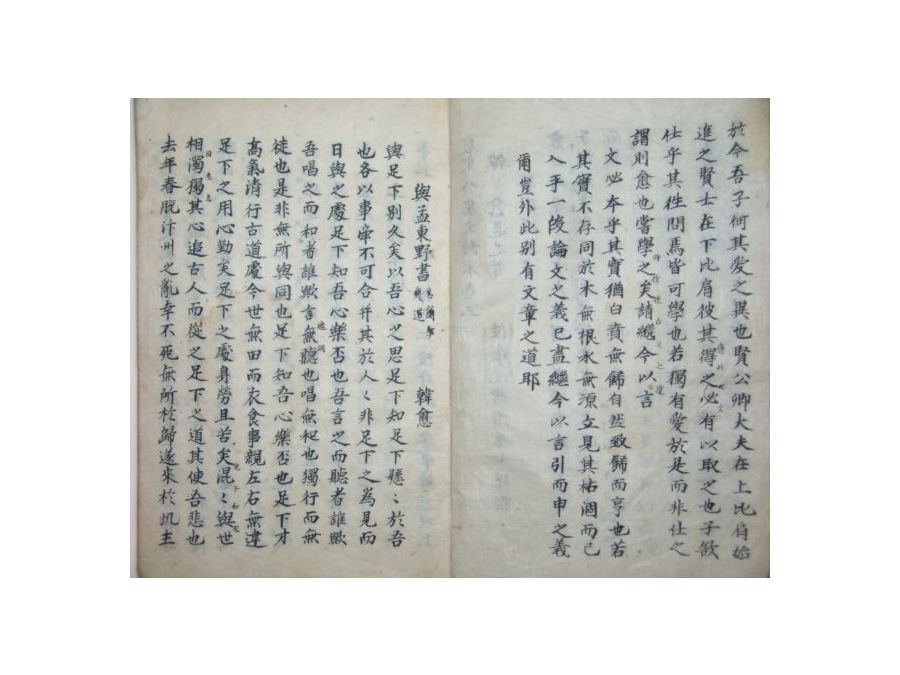 於今吾子何其愛之異也賢公卿大夫在上比肩始
進之賢士在下比肩彼其得之必有以取之也子欲
仕乎其徃問焉皆可學也若獨有愛於是而非仕之
謂則愈也嘗學之矣請繼今以言
文必本乎其實猶白賁無餙自然致餙而亨也若
其實不存同於木無根水無源立見其枯涸而已
入手一段論文之義已盡繼今以言引而申之義
爾豈外此别有文章之道耶
與孟東野書 韓愈
與足下别久矣以吾心之思足下知足下懸〻於吾
也各以事牽不可合并其於人〻非足下之為見而
日與之處足下知吾心樂否也吾言之而聽者誰歟
吾唱之而和者誰歟言無聽也唱無和也獨行而無
徒也是非無所與同也足下知吾心樂否也足下才
高氣清行古道處今世無田而衣食事親左右無違
足下之用心勤矣足下之處身勞且苦矣混〻與世
相濁獨其心追古人而從之足下之道其使吾悲也
去年春脫汴州之亂幸不死無所於歸遂來於此主